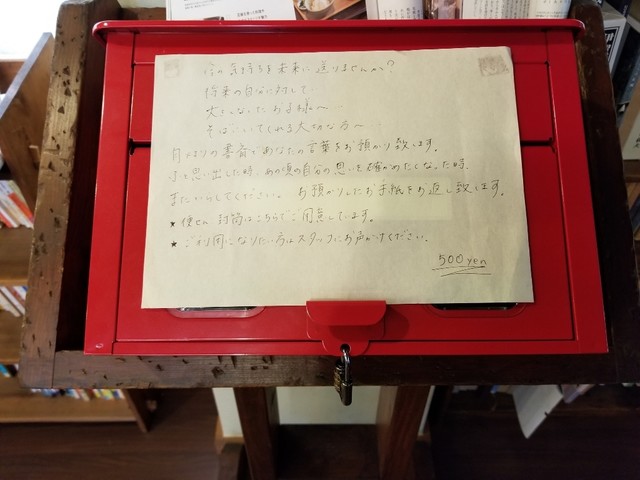 今の気持ちを未来に送りませんか?
将来の自分に対して…
大きくなったお子様へ…
そばにいてくれる大切な方へ…
月あかりの書斎であなたの言葉をお預かり致します。
ふと思い出した時、あの頃の自分の思いを確かめたくなった時、
またいらしてください。 お預かりしたお手紙をお返し致します。
★ 便せん 封筒はこちらでご用意しています。
★ ご利用になりたい方はスタッフにお声がけください。
500yen